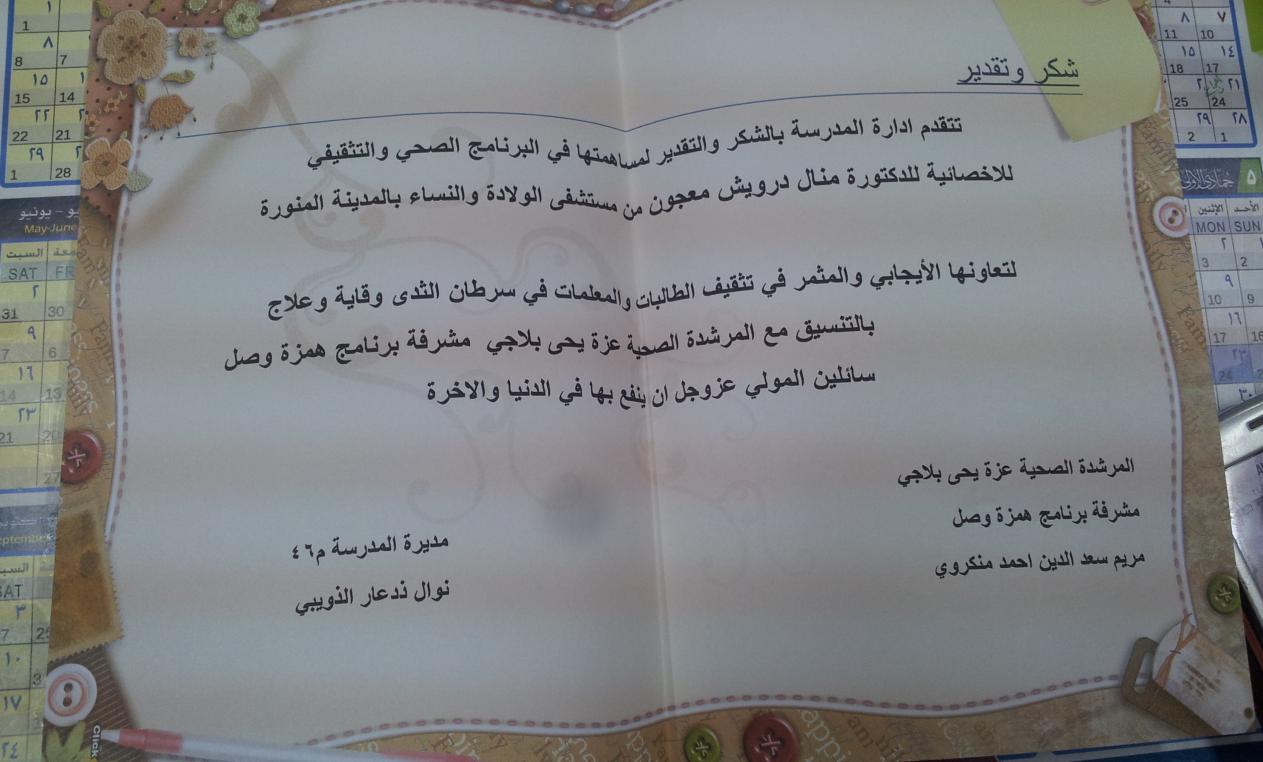 شكر وتقدير
تتقدم ادارة المدرسة بالشكر والتقدير لمساهمتها في البرنامج الصحي والتثقيفي
للاخصائية للدكتورة منال درويش معجون من مستشفى الولادة والنساء بالمدينة المنورة
لتعاونها الأيجابي والمثمر في تثقيف الطالبات والمعلمات في سرطان الثدى وقاية وعلاج
بالتنسيق مع المرشدة الصحية عزة يحى بلاجي مشرفة برنامج همزة وصل
سائلين المولي عزوجل ان ينفع بها في الدنيا والاخرة
المرشدة الصحية عزة يحى بلاجي
مشرفة برنامج همزة وصل
مريم سعد الدين احمد منكروي
مديرة المدرسة م٤٦
نوال ذدعار الذويبي
جمادى الأولى ٥
الأحد الإثنين
MON SUN
يونيو
May-June
السبت
SAT FR
Click